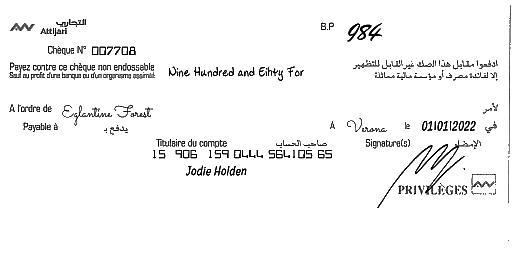 التجاري
Attijari
B.P 984
Chèque N° 007708
Payez contre ce chèque non endossable
Sauf au profit d'une banque ou d'un organisme assimilé
Nine Hundred and Eihty For
ادفعوا مقابل هذا الصك غير القابل للتظهير
إلا لفائدة مصرف أو مؤسسة مالية مماثلة
A l'ordre de Eglantine Forest لأمر
Payable à يدفع بـ
A Verona le 01/01/2022 في
Titulaire du compte صاحب الحساب Signature(s) الإمضاء
15 906 159 0444 564105 65
Jodie Holden
PRIVILÈGES